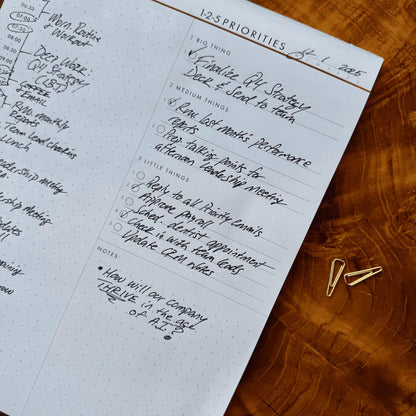 06:30
07:00
07:30
08:00
Main Routine
& Workout
Deep Work:
Q4 Strategy
EMAIL
Run monthly
report
Team lead check-ins
LUNCH
leadership meeting
1-2-5 PRIORITIES
1, 2025
1 BIG THING
Finalize Q4 Strategy
Deck & Send to team
2 MEDIUM THINGS
Rev. last month's performance
reports
Prep talking points for
afternoon leadership meeting
5 LITTLE THINGS
Reply to all priority emails
Approve payroll
Sched. dentist appointment
Check in with team leads
Update CRM notes
NOTES
• How will our company
THRIVE in the age
of A.I.?